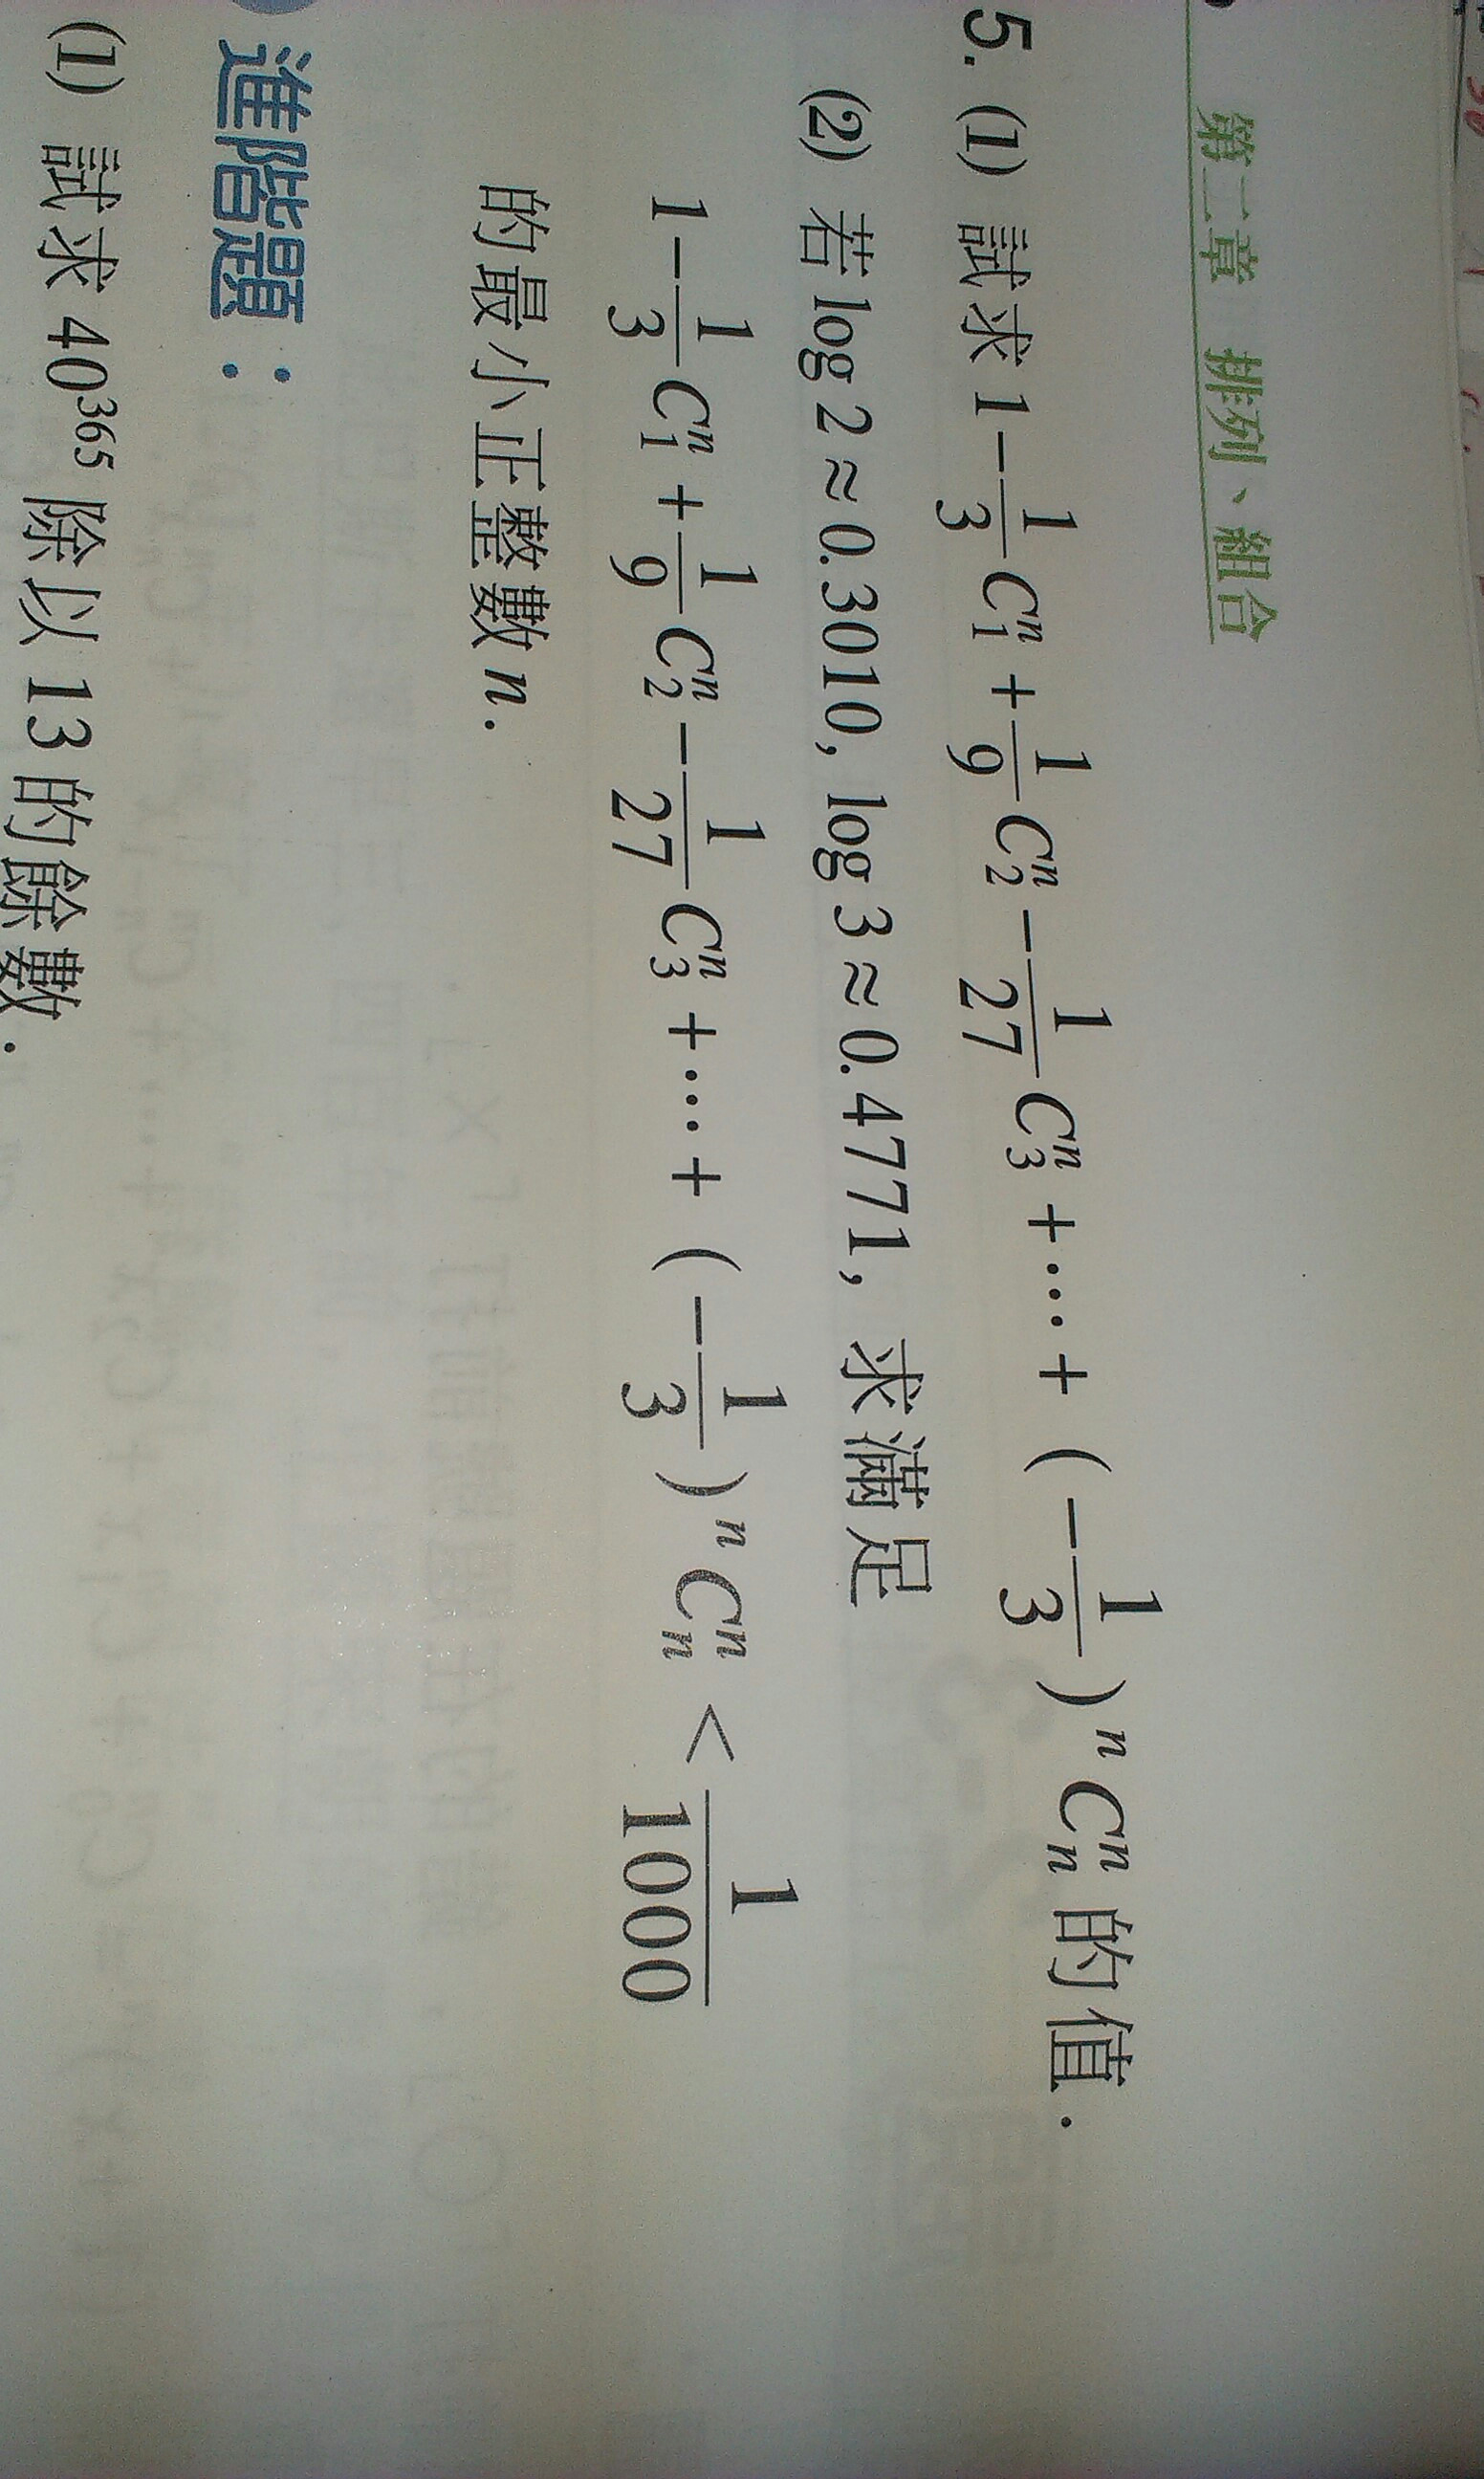 第二章 排列、組合
5. (1) 試求 1 - 1/3 C₁ⁿ + 1/9 C₂ⁿ - 1/27 C₃ⁿ + ⋯ + ( - 1/3 )ⁿ Cₙⁿ 的值.
(2) 若 log 2 ≈ 0.3010, log 3 ≈ 0.4771, 求滿足
1 - 1/3 C₁ⁿ + 1/9 C₂ⁿ - 1/27 C₃ⁿ + ⋯ + ( - 1/3 )ⁿ Cₙⁿ < 1/1000
的最小正整數 n.
進階題：
(1) 試求 40³⁶⁵ 除以 13 的餘數.